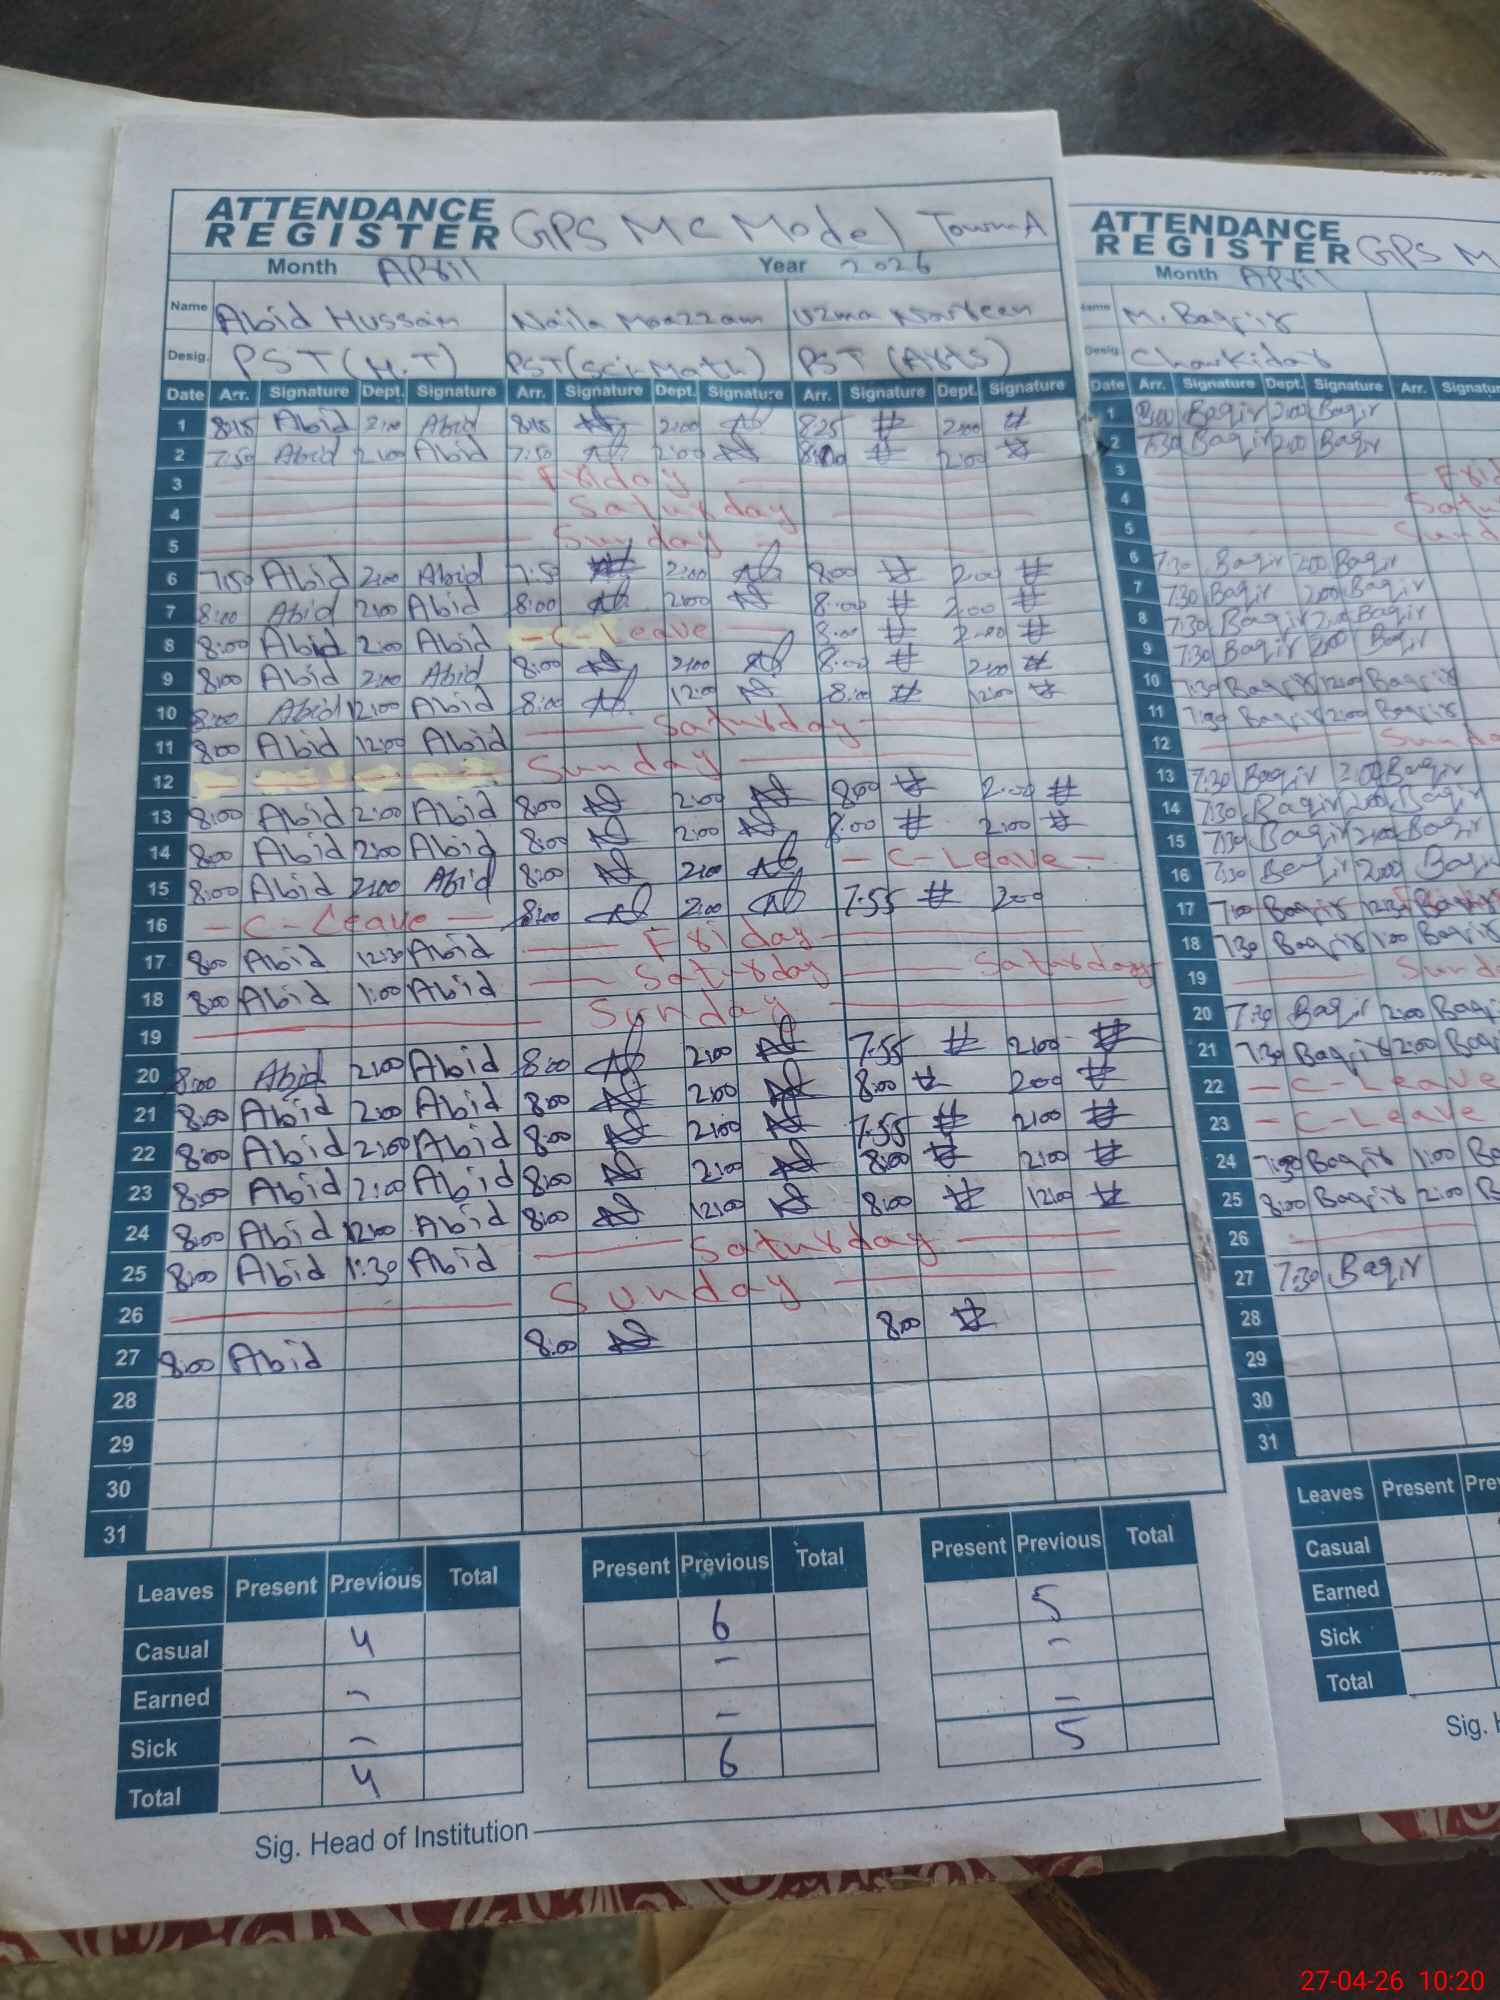 ATTENDANCE REGISTER GPS MC Model Town A
Month April Year 2026
Name Abid Hussain Naila Moazzam Uzma Nasreen
Desig. PST (H.T) PST (Sci-Math) PST (Arts)
Date Arr. Signature Dept. Signature Arr. Signature Dept. Signature Arr. Signature Dept. Signature
1 8:15 Abid 2:00 Abid 8:15 2:00 8:25 2:00
2 7:50 Abid 2:00 Abid 7:50 2:00 8:00 2:00
3 Friday
4 Saturday
5 Sunday
6 7:50 Abid 2:00 Abid 7:50 2:00 8:00 2:00
7 8:00 Abid 2:00 Abid 8:00 2:00 8:00 2:00
8 8:00 Abid 2:00 Abid - C-Leave - 8:00 2:00
9 8:00 Abid 2:00 Abid 8:00 2:00 8:00 2:00
10 8:00 Abid 12:00 Abid 8:00 12:00 8:00 12:00
11 8:00 Abid 12:00 Abid Saturday
12 Sunday
13 8:00 Abid 2:00 Abid 8:00 2:00 8:00 2:00
14 8:00 Abid 2:00 Abid 8:00 2:00 8:00 2:00
15 8:00 Abid 2:00 Abid 8:00 2:00 - C-Leave -
16 - C-Leave - 8:00 2:00 7:55 2:00
17 8:00 Abid 12:30 Abid Friday
18 8:00 Abid 1:00 Abid Saturday Saturday
19 Sunday
20 8:00 Abid 2:00 Abid 8:00 2:00 7:55 2:00
21 8:00 Abid 2:00 Abid 8:00 2:00 8:00 2:00
22 8:00 Abid 2:00 Abid 8:00 2:00 7:55 2:00
23 8:00 Abid 2:00 Abid 8:00 2:00 8:00 2:00
24 8:00 Abid 12:00 Abid 8:00 12:00 8:00 12:00
25 8:00 Abid 1:30 Abid Saturday
26 Sunday
27 8:00 Abid 8:00 8:00
28
29
30
31
Leaves Present Previous Total Present Previous Total Present Previous Total
Casual 4 6 5
Earned - - -
Sick - - -
Total 4 6 5
Sig. Head of Institution
ATTENDANCE REGISTER GPS M
Month April
Name M. Baqir
Desig. Chowkidar
Date Arr. Signature Dept. Signature Arr. Signature
1 Baqir 2:00 Baqir
2 7:30 Baqir 2:00 Baqir
3
4
5
6 7:30 Baqir 2:00 Baqir
7 7:30 Baqir 2:00 Baqir
8 7:30 Baqir 2:00 Baqir
9 7:30 Baqir 2:00 Baqir
10 7:30 Baqir 12:00 Baqir
11 7:30 Baqir 2:00 Baqir
12
13 7:30 Baqir 2:00 Baqir
14 7:30 Baqir 2:00 Baqir
15 7:30 Baqir 2:00 Baqir
16 7:30 Baqir 2:00 Baqir
17 7:00 Baqir 12:30 Baqir
18 7:30 Baqir 1:00 Baqir
19
20 7:30 Baqir 2:00 Baqir
21 7:30 Baqir 2:00
22 - C-Leave
23 - C-Leave
24 7:30 Baqir 1:00
25 8:00 Baqir 2:00
26
27 7:30 Baqir
28
29
30
31
Leaves Present
Casual
Earned
Sick
Total
Sig.
27-04-26 10:20